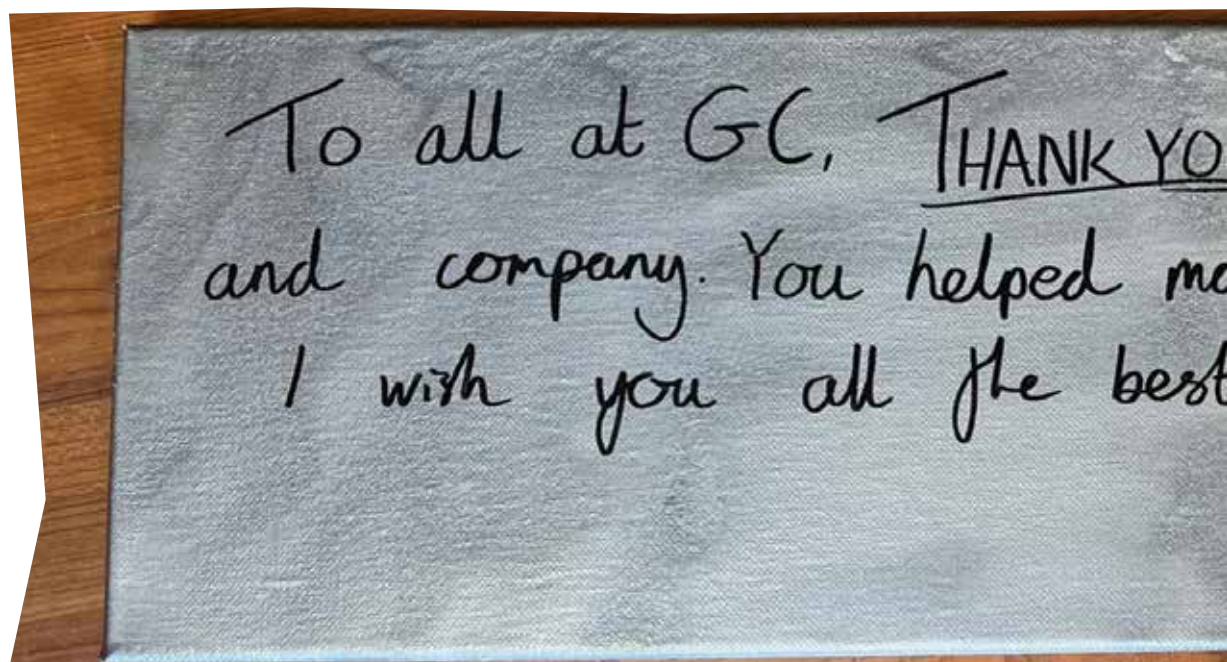 To all at GC, THANK YO
and company. You helped
I wish you all the best